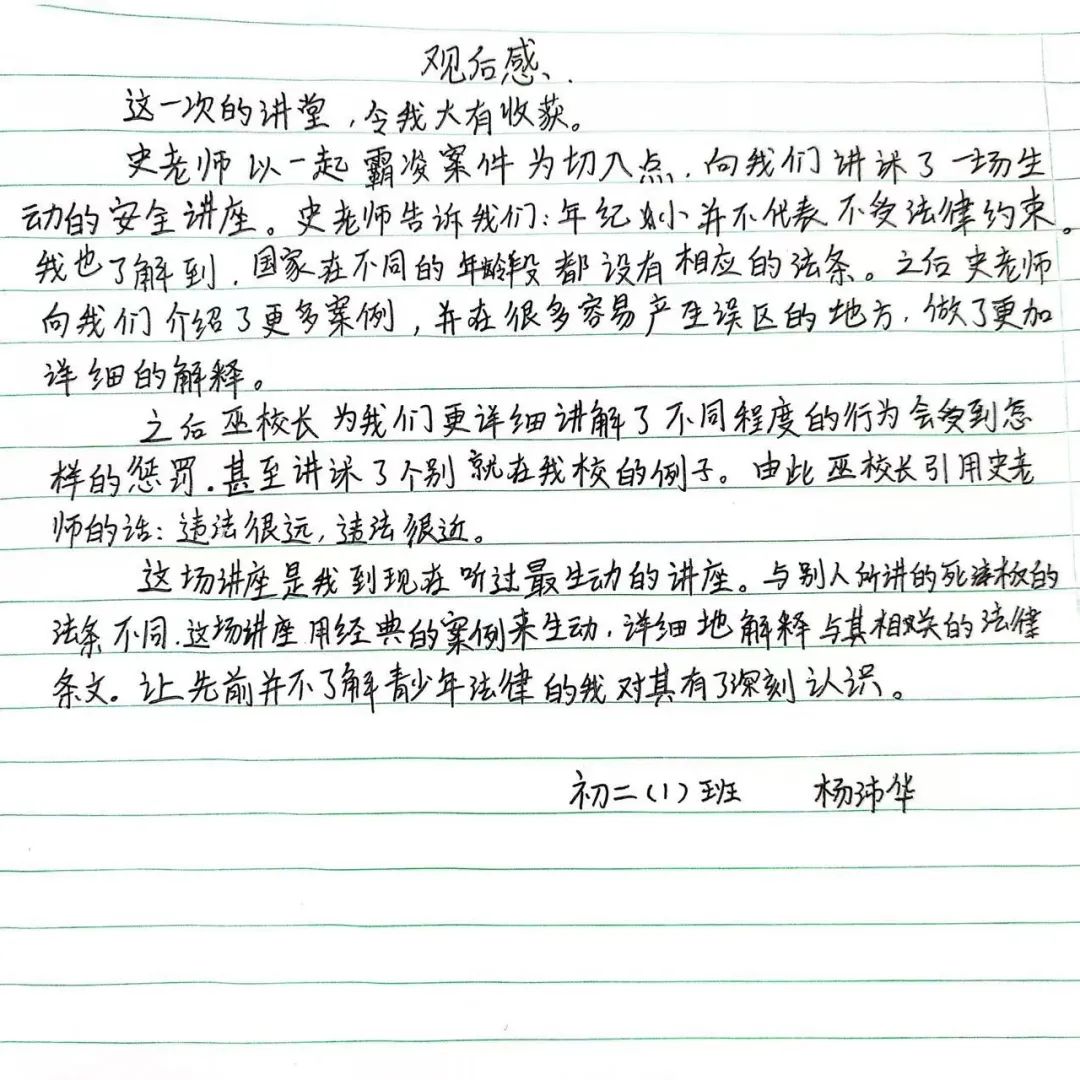 观后感
这一次的讲堂，令我大有收获。
史老师以一起霸凌案件为切入点，向我们讲述了一场生
动的安全讲座。史老师告诉我们：年纪小并不代表不受法律约束。
我也了解到，国家在不同的年龄段都设有相应的法条。之后史老师
向我们介绍了更多案例，并在很多容易产生误区的地方，做了更加
详细的解释。
之后巫校长为我们更详细讲解了不同程度的行为会受到怎
样的惩罚，甚至讲述了个别就在我校的例子。由此巫校长引用史老
师的话：违法很远，违法很近。
这场讲座是我到现在听过最生动的讲座。与别人所讲的死板的
法条不同，这场讲座用经典的案例来生动，详细地解释与其相关的法律
条文。让先前并不了解青少年法律的我对其有了深刻认识。
初二（1）班 杨沛华